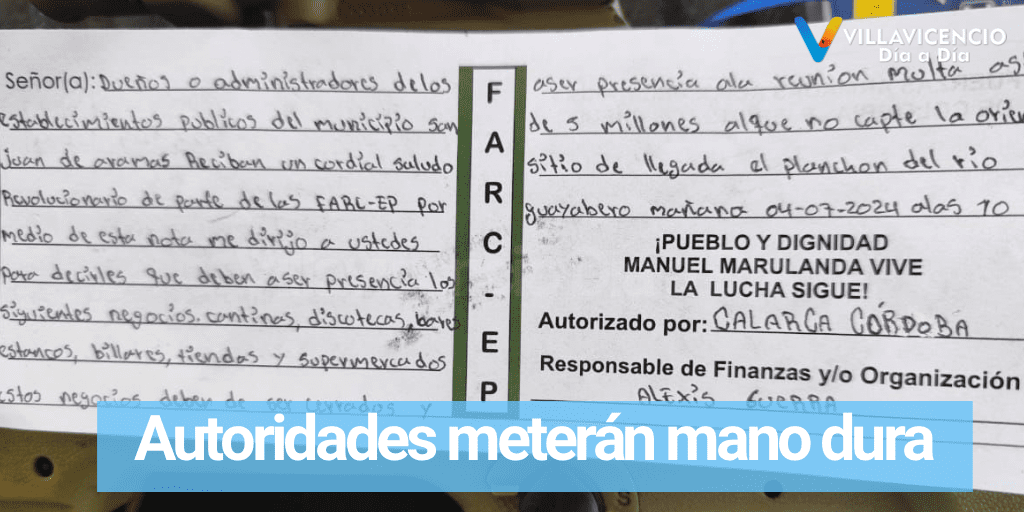 VILLAVICENCIO
Día a Día
Señor(a): Dueños o administradores delos
establecimientos publicos del municipio san
Juan de aramas Reciban un cordial saludo
Revolucionario de parte de las FARC-EP por
medio de esta nota me dirijo a ustedes
Para decirles que deben aser presencia los
siguientes negocios. cantinas, discotecas, bares
estancos, billares, tiendas y supermercados
estos negocios deben de ser cerrados y
F
A
R
C
-
E
P
aser presencia ala reunion multa as
de 5 millones alque no capte la orien
sitio de llegada el planchon del rio
guayabero mañana 04-07-2024 alas 10
¡PUEBLO Y DIGNIDAD
MANUEL MARULANDA VIVE
LA LUCHA SIGUE!
Autorizado por: CALARCA CÓRDOBA
Responsable de Finanzas y/o Organización
ALEXIS GUERRA
Autoridades meterán mano dura